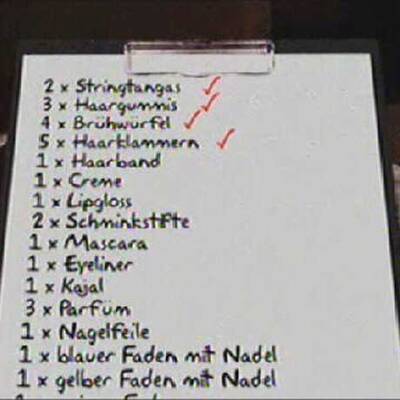 2 x Stringtangas
3 x Haargummis
4 x Brühwürfel
5 x Haarklammern
1 x Haarband
1 x Creme
1 x Lipgloss
2 x Schminkstifte
1 x Mascara
1 x Eyeliner
1 x Kajal
3 x Parfüm
1 x Nagelfeile
1 x blauer Faden mit Nadel
1 x gelber Faden mit Nadel